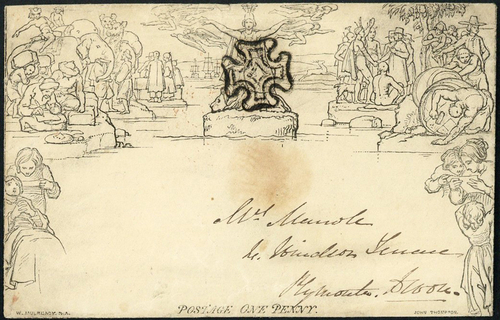 Mrs
Windsor Terrace
Plymouth. Devon.
POSTAGE ONE PENNY.
W. MULREADY. R.A.
JOHN THOMPSON.